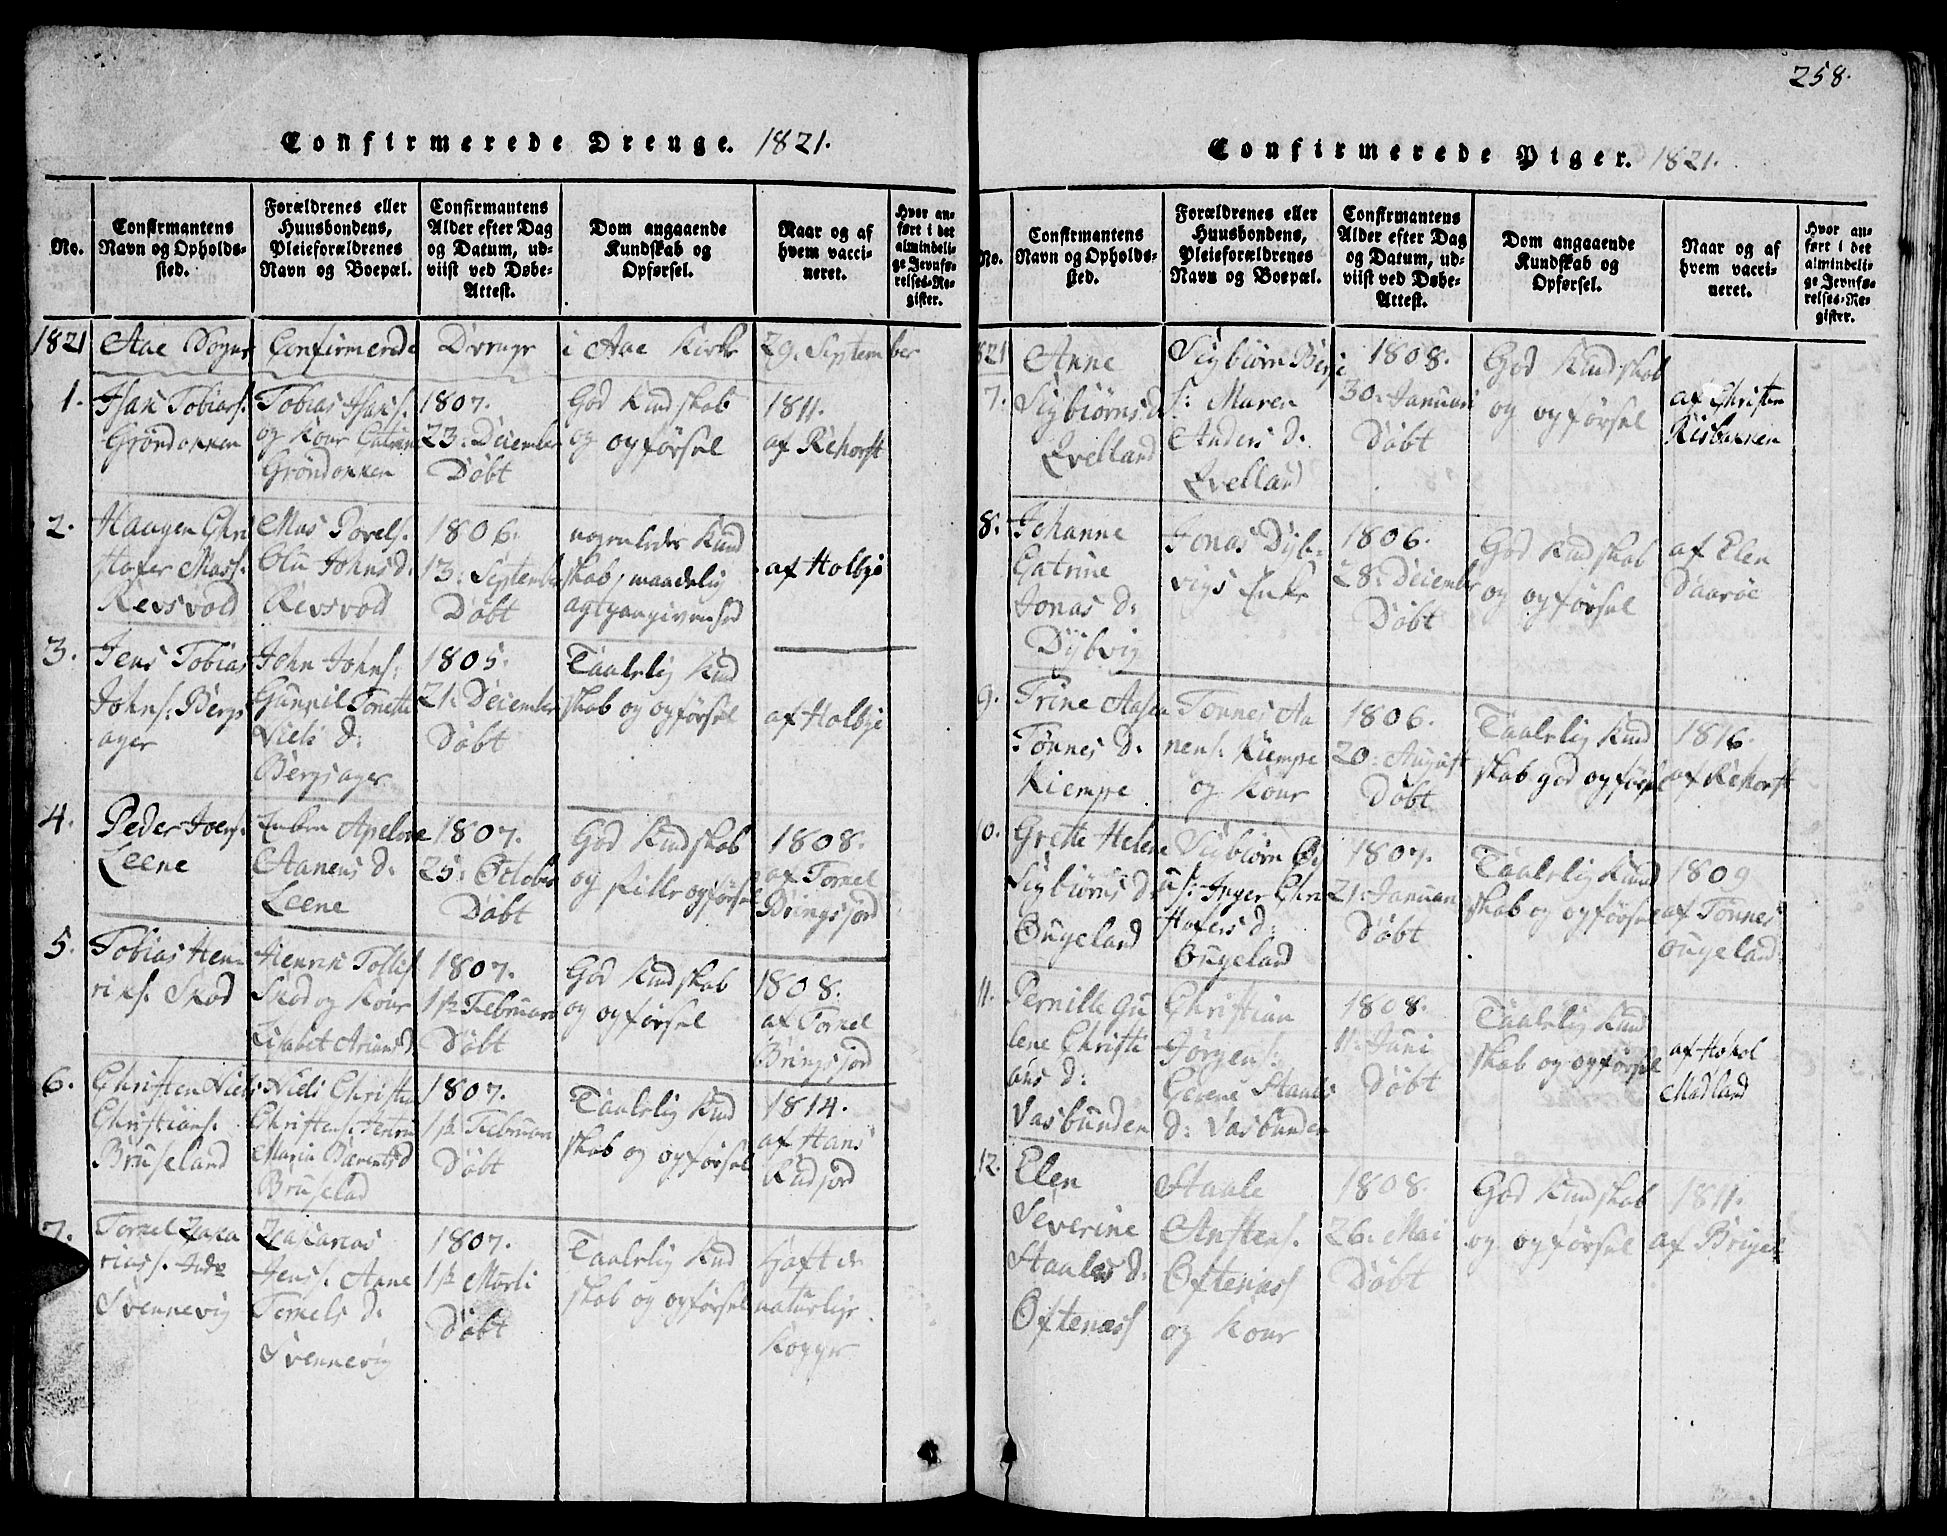 Confirmerede Drenge. 1821.
No.
Confirmantens
Navn og Opholds-
sted.
Forældrenes eller
Huusbondens,
Pleieforældrenes
Navn og Boepæl.
Confirmantens
Alder efter Dag
og Datum, ud-
viist ved Døbe-
Attest.
Dom angaaende
Kundskab og
Opførsel.
Naar og af
hvem vacci-
neret.
Hvor an-
ført i det
almindeli-
ge Jevnfø-
relses-Re-
gister.
1821 Aae Sogns Confirmerede Drenge i Aae Kirke 29. September
1.
Isak Tobiass.
Gröndokken
Tobias Isaks.
og Kone Catrine
Gröndokken
1807.
23: December
Döbt
God Kundskab
og opförsel
1811.
af Rehorst
2.
Haagen Chri
stofer Mass.
Revsvold
Mas Povels.
Olu Johns d:
Revsvold
1806.
13: September
Döbt
nogenledes Kund
skab, maadelig
agtpaagivenhed
af Holbye
3.
Jens Tobias
Johns. Bergs
ager
John Johns:
Gunnil Tonette
Niels d:
Bergsager
1805.
21: December
Döbt
Taalelig Kund
skab og opförsel
af Holbye
4.
Peder Joers.
Leene
Enken Apelone
Aanens d:
Leene
1807.
25: Octobr
Döbt
God Kundskab
og stille opförsel
1808.
af Tornel
Bringsjord
5.
Tobias Hen
riks. Skod
Henrik Tollis.
Skod og Kone
Lisabet Arians d
1807.
1ste Februari
Döbt
God Kundskab
og opförsel
1808.
af Tornel
Bringsjord
6.
Christen Niels
Christians.
Bruseland
Niels Christen
Christens. Henrine
Marie Barents d
Bruselad
1807.
1ste Februari
Döbt
Taalelig Kund
skab og opförsel
1814.
af Hans
Rudjord
7.
Tornel Zaka
rias. Indr
Svennevig
Zakarias
Jens. Anne
Temels d:
Svennevig
1807.
1ste Marti
Döbt
Taalelig Kund
skab og opförsel
Haft de
naturlige
Kopper
258.
Confirmerede Piger. 1821.
No.
Confirmantens
Navn og Opholds-
sted.
Forældrenes eller
Huusbondens,
Pleieforældrenes
Navn og Boepæl.
Confirmantens
Alder efter Dag
og Datum, ud-
viist ved Døbe-
Attest.
Dom angaaende
Kundskab og
Opførsel.
Naar og af
hvem vacci-
neret.
Hvor an-
ført i det
almindeli-
ge Jevnfø-
relses-Re-
gister.
821
7.
Anne
Sigbiörns d
Qvelland
Sigbiörn Berge
s: Maren
Anders d:
Qvelland
1808.
30: Januari
Döbt
God Kundskab
og opförsel
af Christen
Risbakken
8.
Johanne
Catrine
Jonas d:
Dybvig
Jonas Dyb-
vigs Enke
1806.
28: Decembr
Döbt
God Kundskab
og opförsel
af Elen
Daaröe
9.
Trine Aasen
Tönnes d:
Kiempe
Tönnes Aa
nens: Kiempe
og Kone
1806.
20: August
Döbt
Taalelig Kund
skab god opförsel
1816.
af Rehorst
10.
Grette Helene
Sigbiörns d:
Öugeland
1807.
21: Januari
Döbt
Hofers d:
Öugeland
Taalelig Kund
skab og opförsel
1809
af Tönnes
Öugeland
11.
Pernille Gu
lene Christi
ans d:
Vasbunden
Christian
Jörgens:
Gurene Staales
d: Vasbunden
1808.
11: Juni
Döbt
Taalelig Kund
skab og opförsel
af Hokol
Madland
12.
Elen
Severine
Staales d:
Öftenæss
Staale
Anstens.
Öftenæss
og Kone
1808.
26: Mai
Döbt
God Kundskab
og opförsel
1811.
af Briget